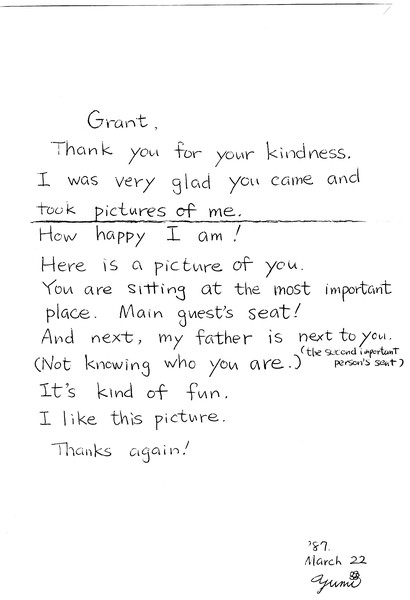 Grant,
Thank you for your kindness.
I was very glad you came and
took pictures of me.
How happy I am!
Here is a picture of you.
You are sitting at the most important
place. Main guest's seat!
And next, my father is next to you.
(Not knowing who you are.) (the second important
person's seat)
It's kind of fun.
I like this picture.
Thanks again!
'87.
March 22
Yumi